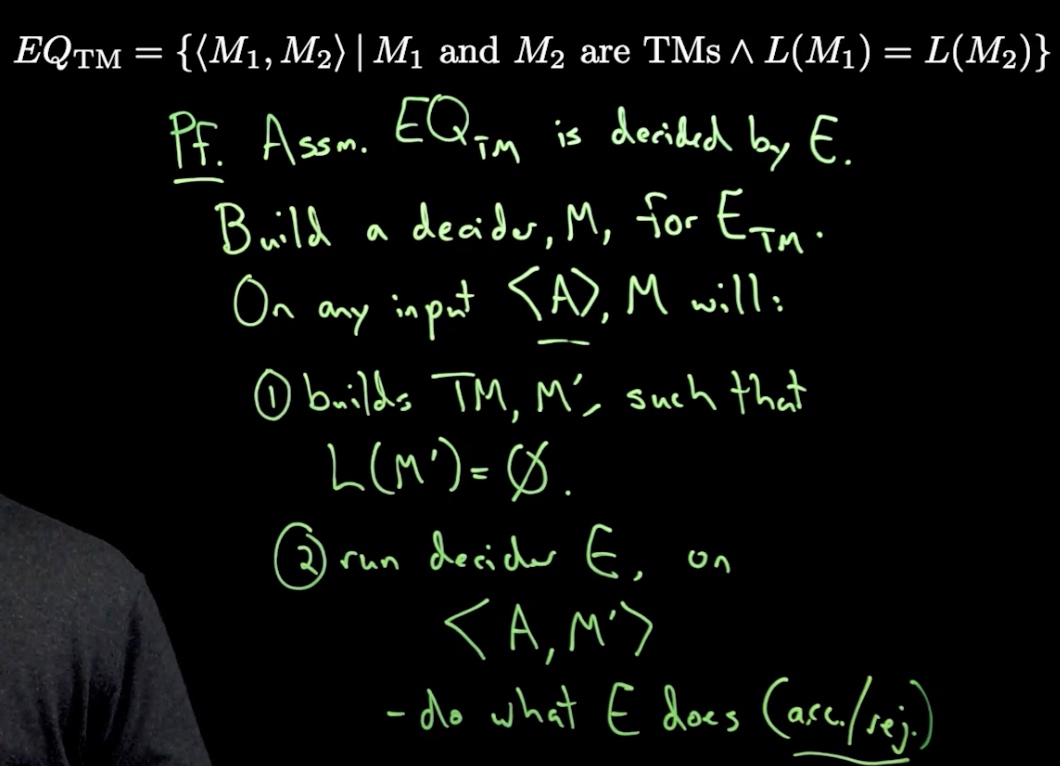 EQ_TM = {⟨M₁, M₂⟩ | M₁ and M₂ are TMs ∧ L(M₁) = L(M₂)}
Pf. Assm. EQ_TM is decided by E.
Build a decider, M, for E_TM.
On any input <A>, M will:
① builds TM, M', such that
L(M') = ∅.
② run decider E, on
<A, M'>
- do what E does (acc./rej.)